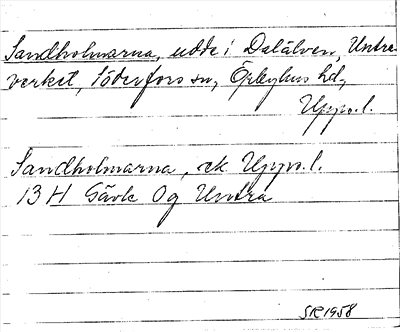 Sandholmarna, udde i Dalälven, Untra-
verket, Söderfors sn, Örbyhus hd,
Upps. l.
Sandholmarna, ek Upps. l.
13 H Gävle 0g Untra
SR 1958